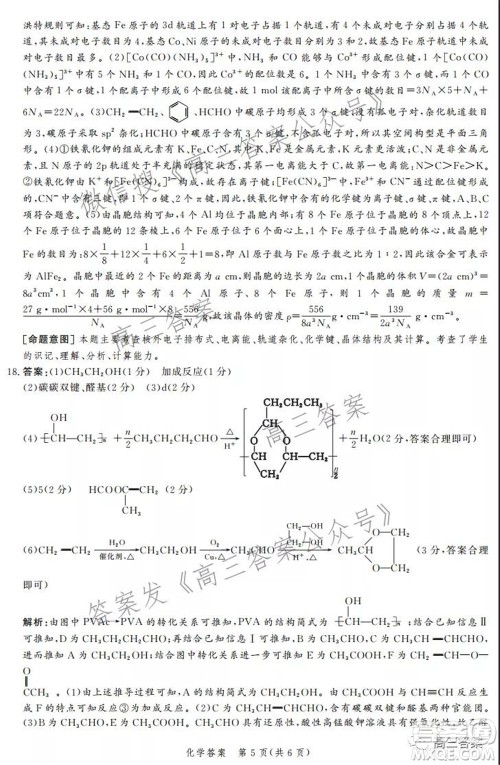 洪特规则可知：基态 Fe 原子的 3d 轨道上有 1 对电子占据 1 个轨道，有 4 个未成对电子占据 4 个轨道，故其
未成对电子数目为 4，基态 Co、Ni 原子的未成对电子数目分别为 3 和 2，故基态 Fe 原子轨道中未成
对电子数目最多。(2)[Co(CO)(NH₃)₅]³⁺ 中，NH₃ 和 CO 能够与 Co³⁺ 形成配位键，1 个[Co(CO)
(NH₃)₅]³⁺ 中有 5 个 NH₃ 和 1 个 CO，因此 Co³⁺ 的配位数是 6。1 个 NH₃ 中含有 3 个 σ 键，而 1 个 CO
中含有 1 个 σ 键，1 个配离子中形成 6 个配位键，故 1 mol 该配离子中含有 σ 键的数目＝3Nᴀ×5＋Nᴀ＋
6Nᴀ＝22Nᴀ。(3)CH₂—CH₂、 、HCHO 中碳原子均形成 3 个 σ 键，没有孤电子对，杂化轨道数目
为 3，碳原子采取 sp² 杂化；HCHO 中碳原子含有 3 个 σ 键，不含孤电子对，所以其空间构型是平面三角
形。(4)①铁氰化钾的组成元素有 K、Fe、C、N，其中 K、Fe 是金属元素，K 元素更活泼；C、N 是非金属元
素，且 N 原子的 2p 轨道处于半充满的稳定状态，其第一电离能大于 C，故第一电离能：N＞C＞Fe＞K。
②铁氰化钾由 K⁺ 和[Fe(CN)₆]³⁻ 构成，故存在离子键；[Fe(CN)₆]³⁻ 中，Fe³⁺ 与 CN⁻ 通过配位键形
成，CN⁻ 中含有三键，即 1 个 σ 键、2 个 π 键，因此，铁氰化钾中含有的化学键为离子键、σ 键、π 键，A、B、C
项符合题意。(5)由晶胞结构可知，4 个 Al 均位于晶胞内；有 8 个 Fe 原子位于晶胞的 8 个顶点上，12
个 Fe 原子位于晶胞的 12 条棱上，6 个 Fe 原子位于 6 个面心上，1 个 Fe 原子位于晶胞的体心，故晶胞中
Fe 的数目为：8×1/8＋12×1/4＋6×1/2＋1＝8；因此，晶体中 Al 和 Fe 的原子个数比为 1∶2，因此化学式可表示
为 AlFe₂。晶胞中最近的 2 个 Fe 的距离为 a cm，则晶胞的边长为 2a cm，1 个晶胞的体积 V＝(2a cm)³＝
8a³cm³，1 个晶胞中含有 4 个 Al 原子、8 个 Fe 原子，1 个晶胞的质量 m＝
27 g·mol⁻¹×4＋56 g·mol⁻¹×8/Nᴀ＝556/Nᴀ g，故该晶体的密度 ρ＝556/8a³Nᴀ g·cm⁻³＝139/2a³Nᴀ g·cm⁻³。
[命题意图]本题主要考查核外电子排布式、电离能、轨道杂化、化学键、晶体结构及其计算。考查了学生
的识记、理解、分析、计算能力。
18. 答案：(1)CH₃CH₂OH(1 分) 加成反应(1 分)
(2)碳碳双键、醛基(2 分) (3)d(2 分)
(4) OH CH—CH₂ ＋n/2CH₃CH₂CH₂CHO △ H⁺ CH₂CH₂CH₃ CH O O CH CH CH₂ CH₂ n/2 ＋n/2H₂O(2 分，答案合理即可)
(5)5(2 分) HCOOC—CH₂ CH₃ (2 分)
(6)CH₂—CH₂ H₂O 催化剂、△ CH₃CH₂OH O₂ Cu、△ CH₃CHO CH₂—OH CH₂—OH H⁺ △ CH₃—CH O—CH₂ O—CH₂ (3 分，答案合理
即可)
解析：由图中 PVAc→PVA 的转化关系可推知，PVA 的结构简式为 OH CH—CH₂ ；结合已知信息Ⅱ
可推知，D 为 CH₃CH₂CH₂CHO；再结合已知信息Ⅰ可推知，B 为 CH₃CHO，C 为 CH₃CH—CHCHO，
进而推知 A 为 CH₃CH₂OH；结合图中转化关系可推知，E 为 CH₃COOH，F 为 CH₂—CH—O—
O CCH₃。(1)由上述推导过程可知，A 的结构简式为 CH₃CH₂OH。由 CH₃COOH 与 CH≡CH 反应生
成 F 的特点可知反应③为加成反应。(2)C 为 CH₃CH—CHCHO，含有碳碳双键和醛基两种官能团。
(3)B 为 CH₃CHO，E 为 CH₃COOH。CH₃CHO 具有还原性，酸性高锰酸钾溶液具有强氧化性，故 CH₃
化学答案 第 5 页(共 6 页)
微信搜《高三答案公众号》
高三答案
高三答案
答案发《高三答案公众号》
高三答案